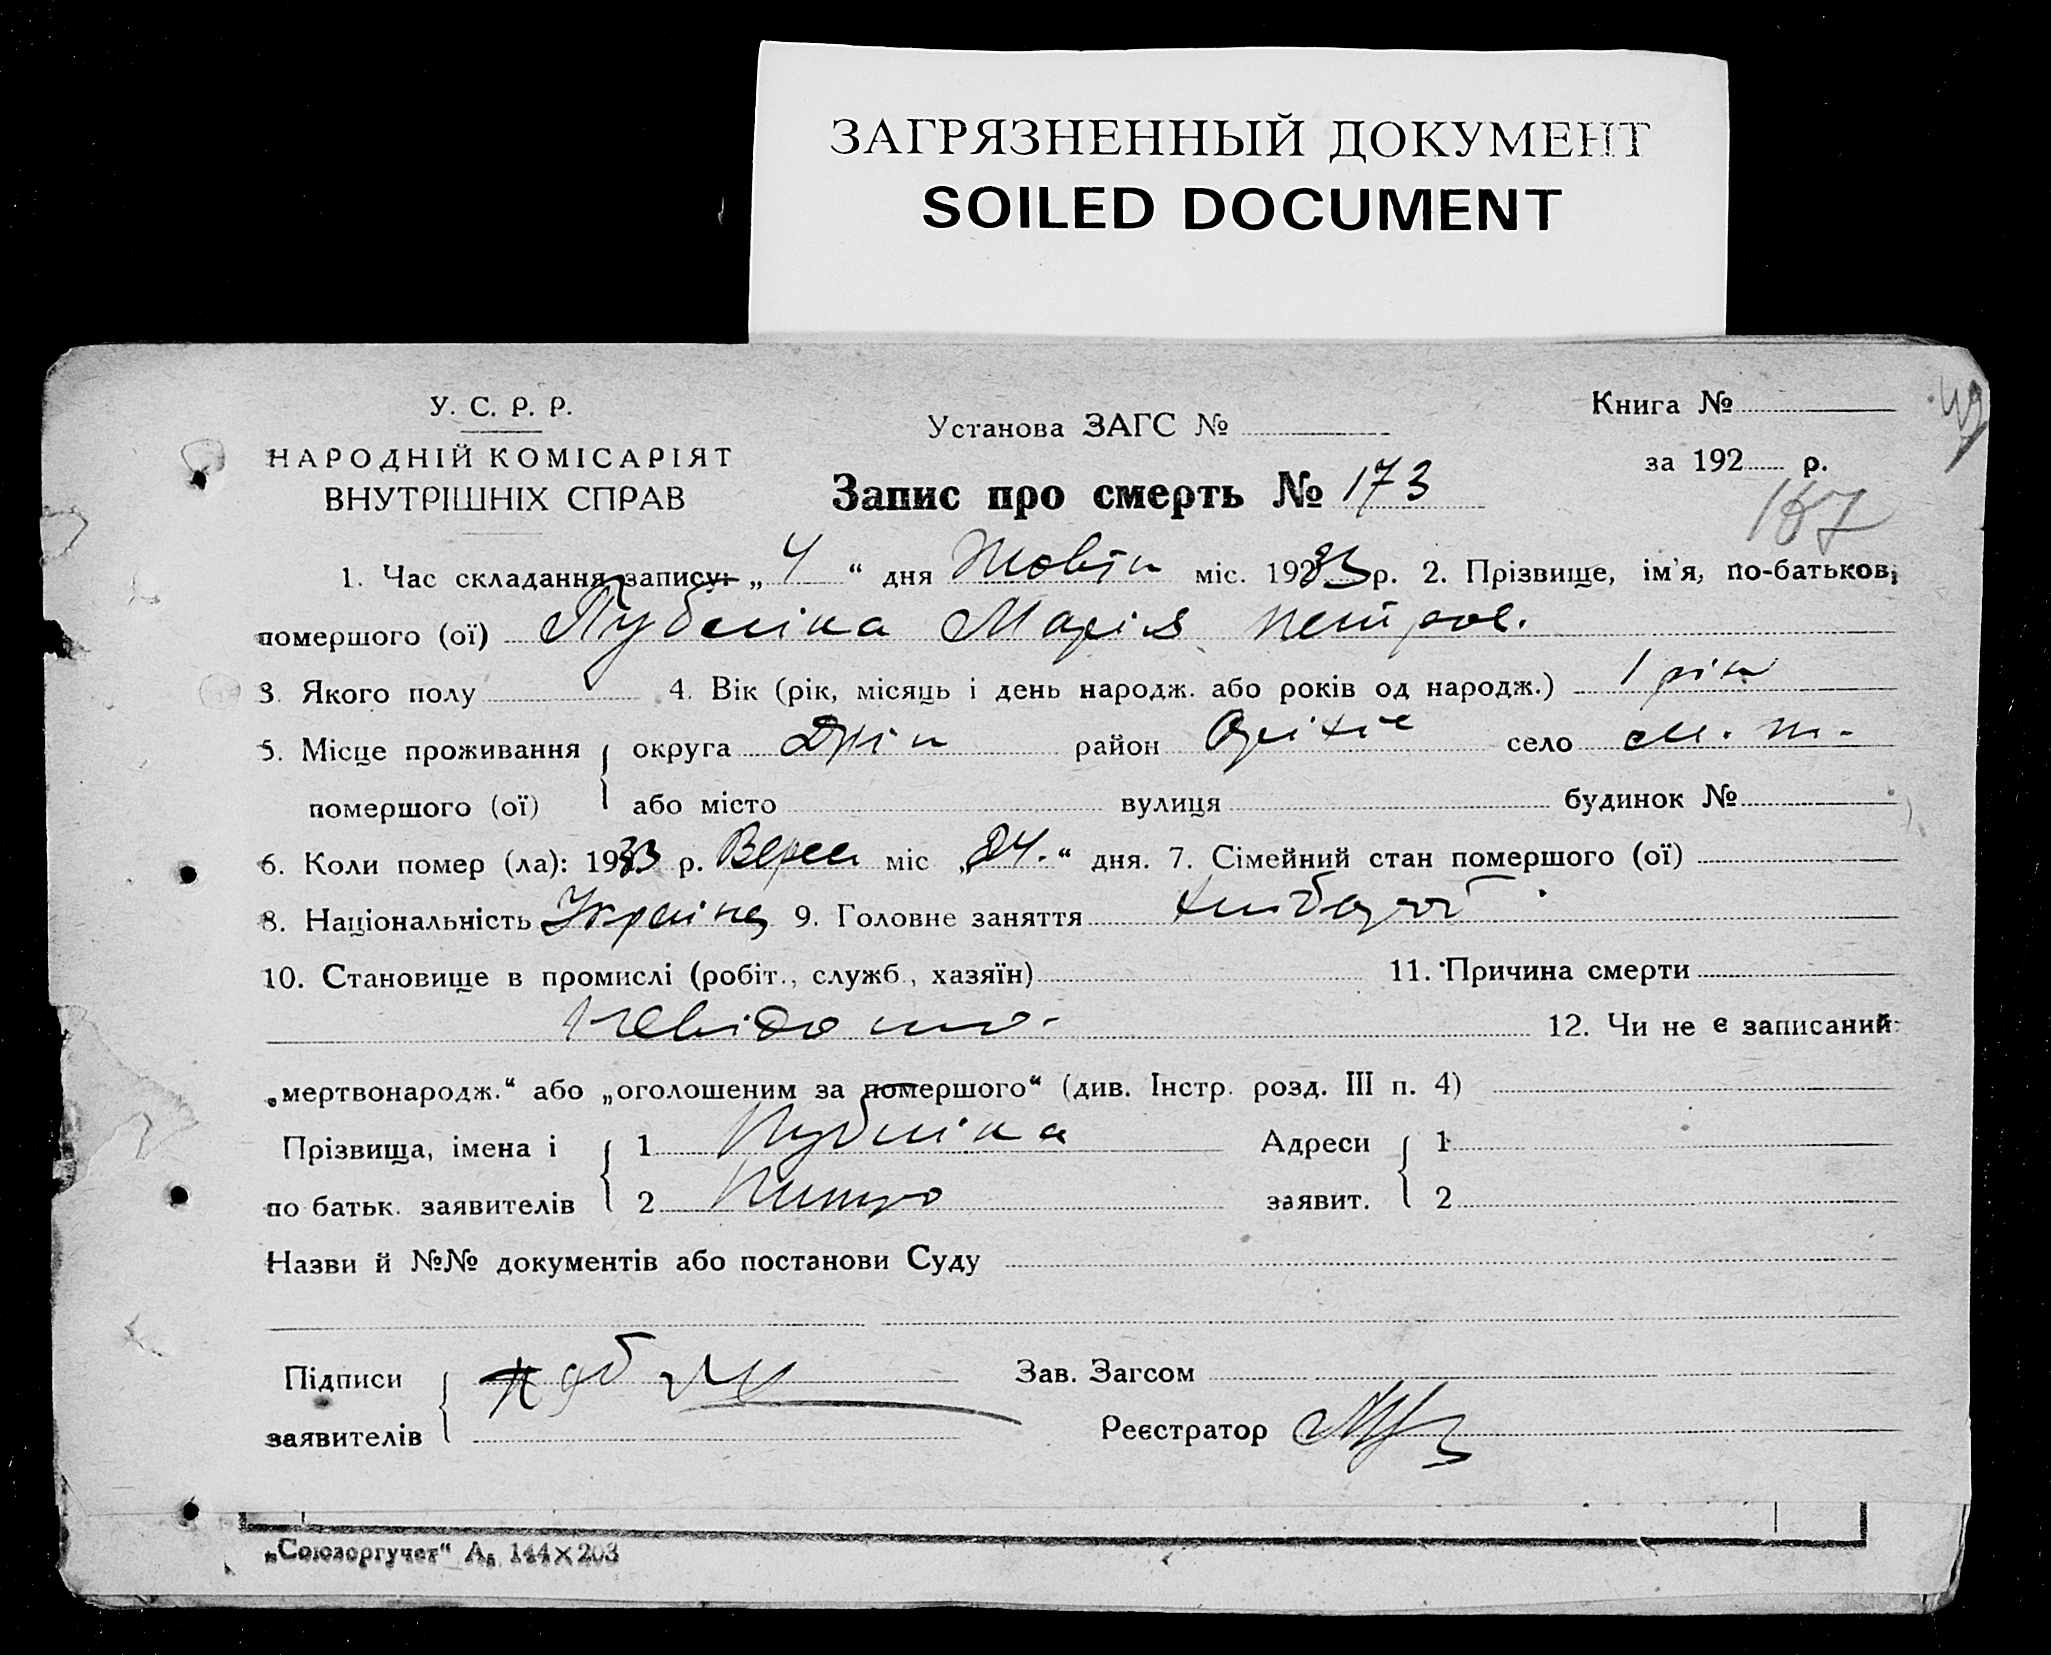 ЗАГРЯЗНЕННЫЙ ДОКУМЕНТ
SOILED DOCUMENT
У. С. Р. Р.
НАРОДНІЙ КОМІСАРІЯТ
ВНУТРІШНІХ СПРАВ
Установа ЗАГС №
Книга №
за 192 р.
49
167
Запис про смерть № 173
1. Час складання запису: „ 4 “ дня Жовтн міс. 1933 р. 2. Прізвище, ім'я, по-батькові
помершого (ої) Марія Петров.
3. Якого полу 4. Вік (рік, місяць і день народж. або років од народж.) 1 рік
5. Місце проживання округа Дніп район Оріхів село м. т.
помершого (ої) або місто вулиця будинок №
6. Коли помер (ла): 1933 р. Верес міс „24.“ дня. 7. Сімейний стан помершого (ої)
8. Національність Україна 9. Головне заняття хлібороб.
10. Становище в промислі (робіт., служб., хазяїн) 11. Причина смерти
невідомо.
12. Чи не є записаний
„мертвонародж.“ або „оголошеним за помершого“ (див. Інстр. розд. III п. 4)
Прізвища, імена і 1 Адреси 1
по батьк. заявителів 2 Петро заявит. 2
Назви й №№ документів або постанови Суду
Підписи
заявителів
Зав. Загсом
Реєстратор
„Союзоргучет“ А5 144×203